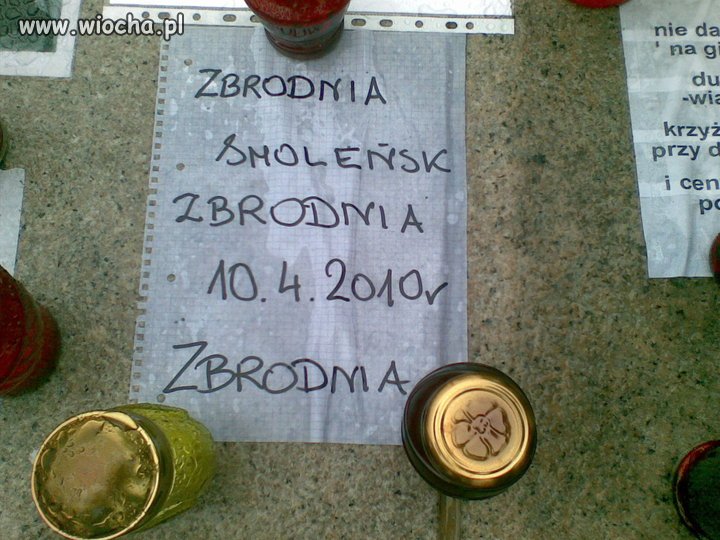 www.wiocha.pl
ZBRODNIA
SMOLEŃSK
ZBRODNIA
10.4.2010r
ZBRODNIA
nie da
na gi
du
-wia
krzyż
przy d
i cen
po